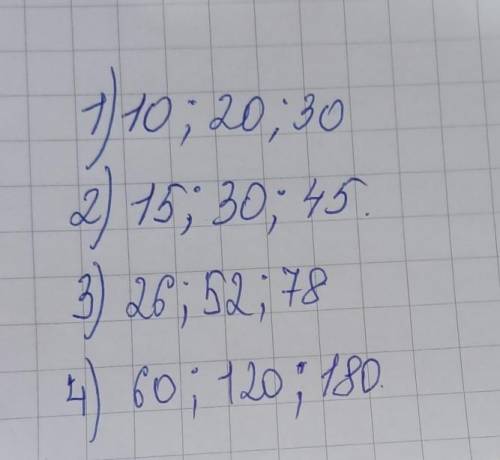 1) 10; 20; 30
2) 15; 30; 45.
3) 26; 52; 78
4) 60; 120; 180.